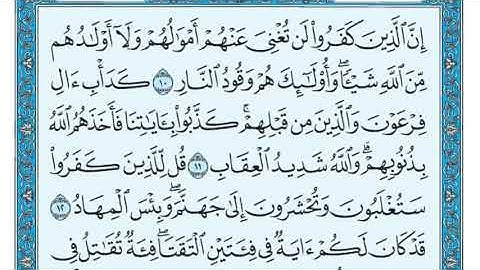 إِنَّ ٱلَّذِينَ كَفَرُوا۟ لَن تُغْنِىَ عَنْهُمْ أَمْوَٰلُهُمْ وَلَآ أَوْلَٰدُهُم
مِّنَ ٱللَّهِ شَيْـًٔا ۖ وَأُو۟لَٰٓئِكَ هُمْ وَقُودُ ٱلنَّارِ ١٠ كَدَأْبِ ءَالِ
فِرْعَوْنَ وَٱلَّذِينَ مِن قَبْلِهِمْ ۚ كَذَّبُوا۟ بِـَٔايَٰتِنَا فَأَخَذَهُمُ ٱللَّهُ
بِذُنُوبِهِمْ ۗ وَٱللَّهُ شَدِيدُ ٱلْعِقَابِ ١١ قُل لِّلَّذِينَ كَفَرُوا۟
سَتُغْلَبُونَ وَتُحْشَرُونَ إِلَىٰ جَهَنَّمَ ۚ وَبِئْسَ ٱلْمِهَادُ ١٢
قَدْ كَانَ لَكُمْ ءَايَةٌ فِى فِئَتَيْنِ ٱلْتَقَتَا ۖ فِئَةٌ تُقَٰتِلُ فِى